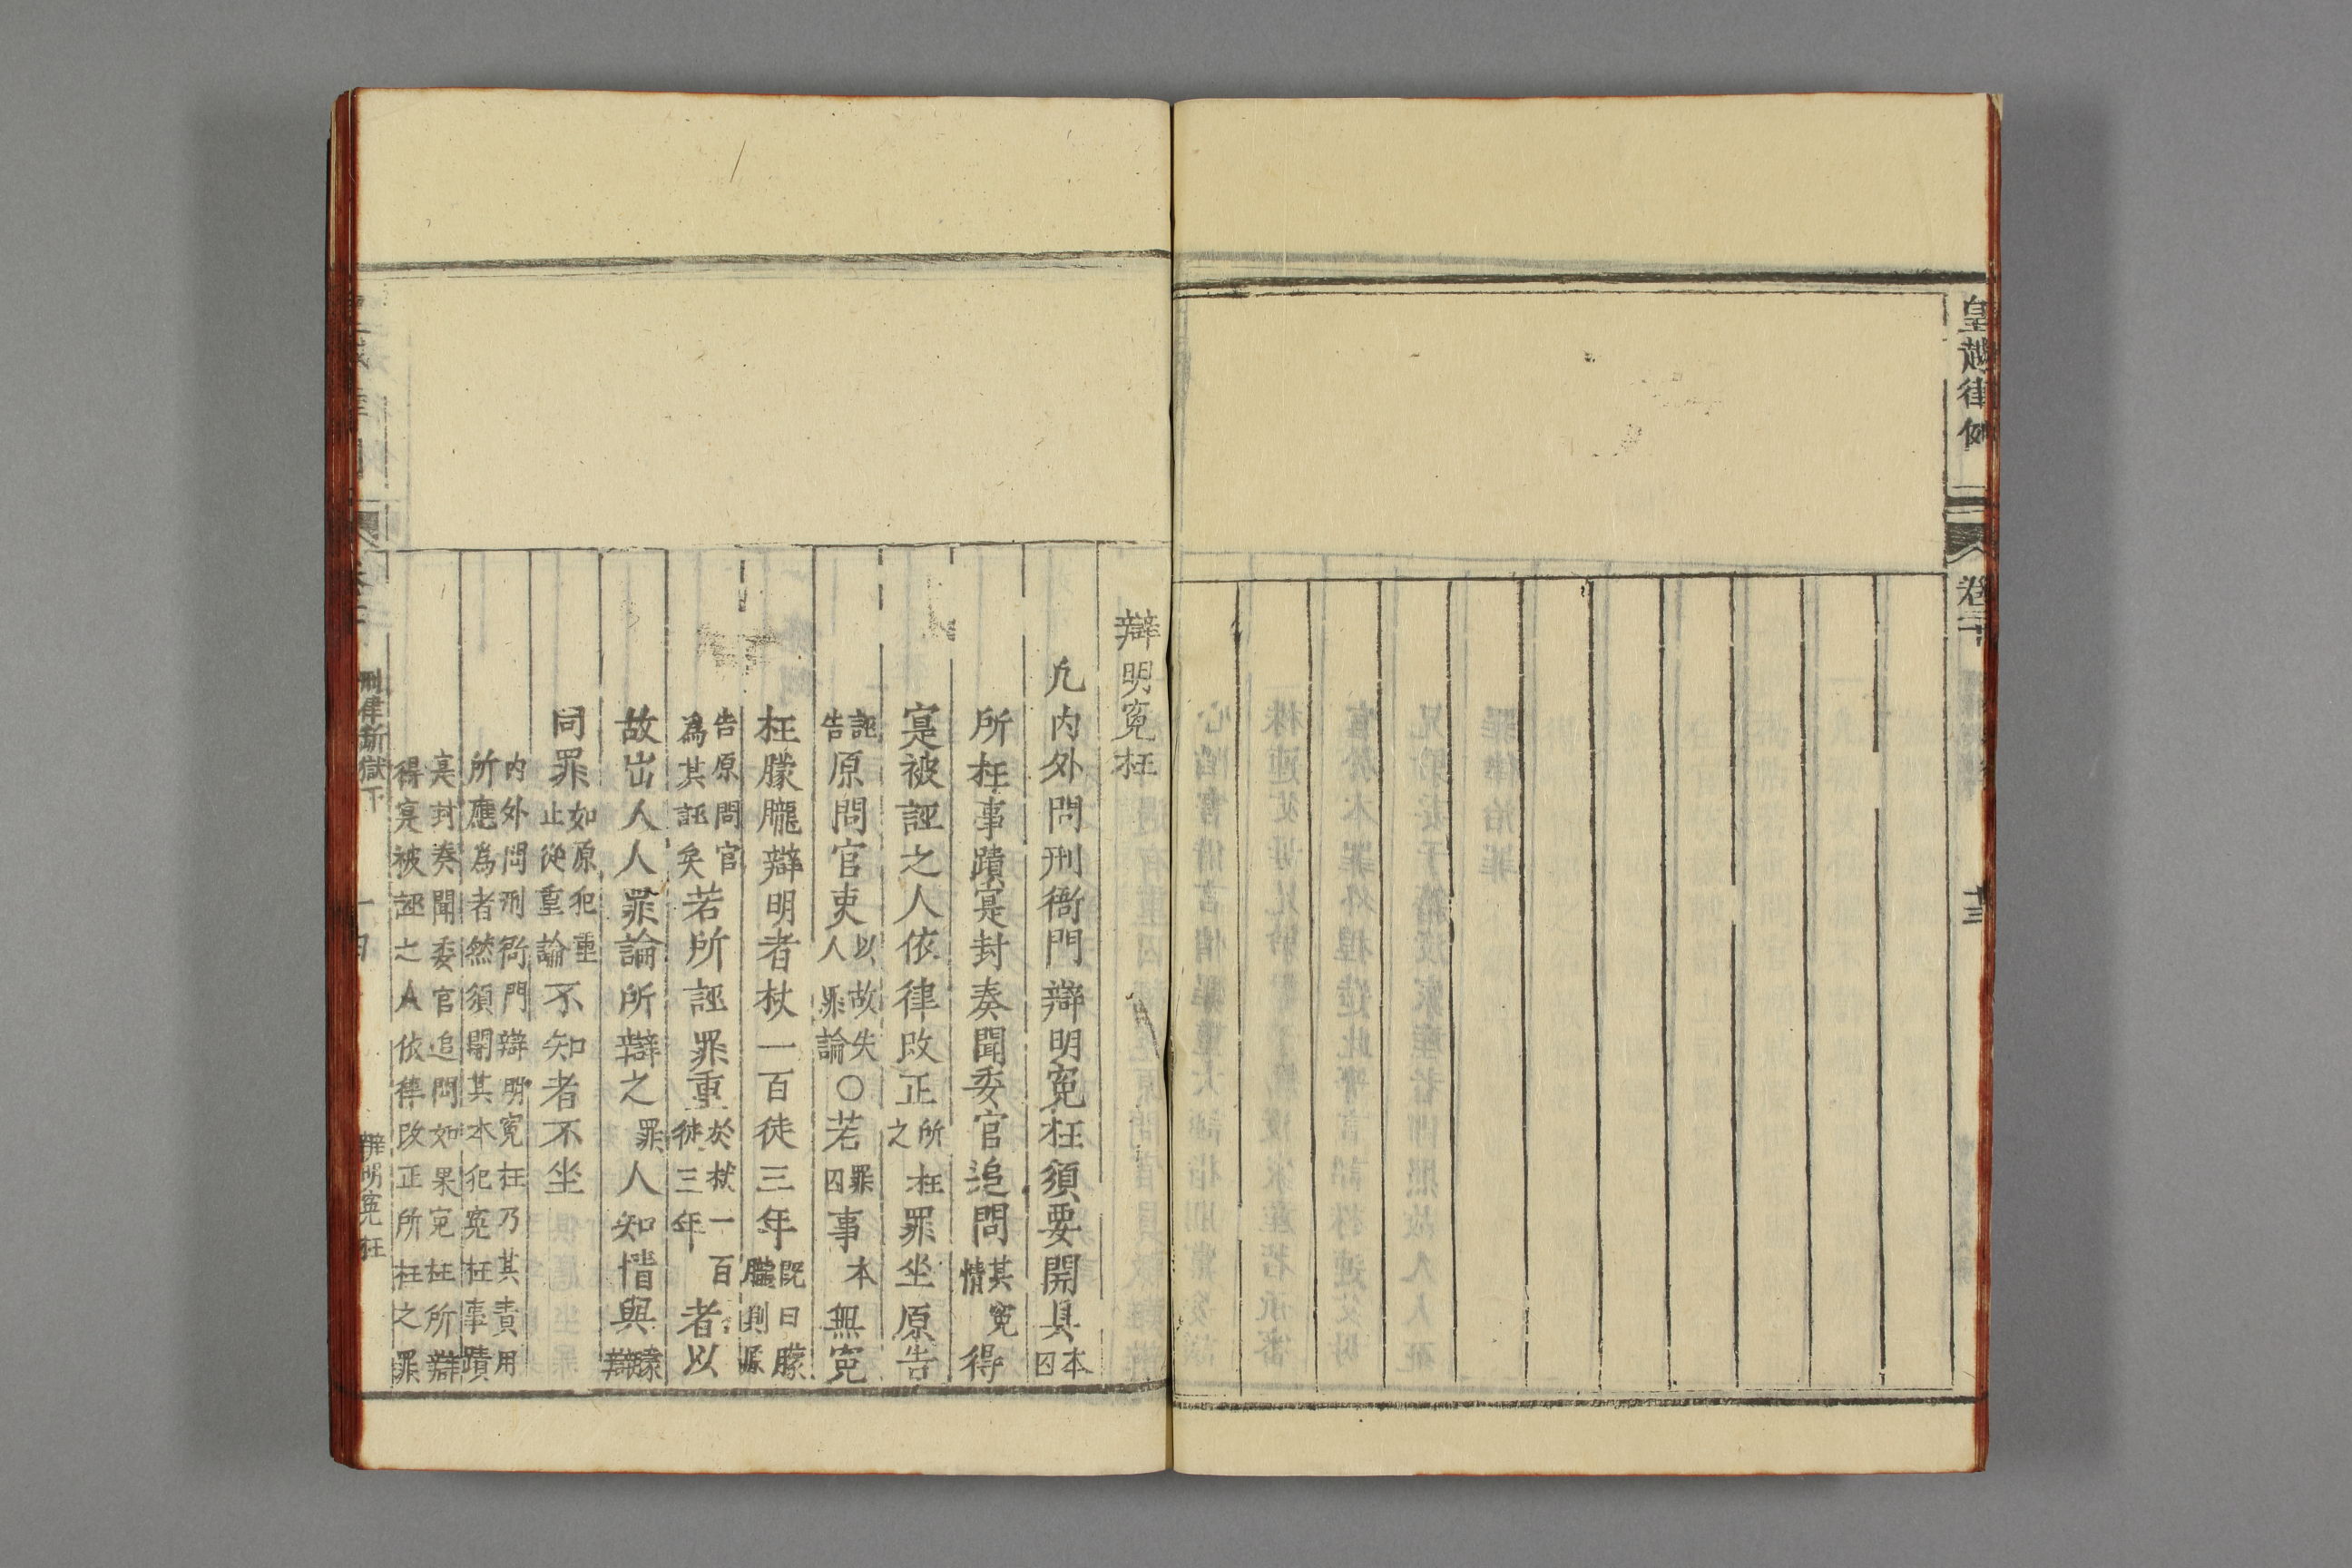 皇越律例
卷二十
十三
辯明冤枉
凡内外問刑衙門辯明冤枉須要開具本囚
所枉事蹟寔封奏聞委官追問其冤情得
寔被誣之人依律改正所枉之罪坐原告
誣告原問官吏以故失人罪論○若罪囚事本無冤
枉朦朧辯明者杖一百徒三年既曰朦朧則原
告原問官為其誣矣若所誣罪重於杖一百徒三年者以
故出人人罪論所辯之罪人知情與朦辯
同罪如原犯重止從重論不知者不坐
内外問刑衙門辯明冤枉乃其責用
所應為者然須開其本犯冤枉事蹟
寔封奏聞委官追問如果冤枉所辯
得寔被誣之人依律改正所枉之罪
刑律斷獄下
辯明冤枉